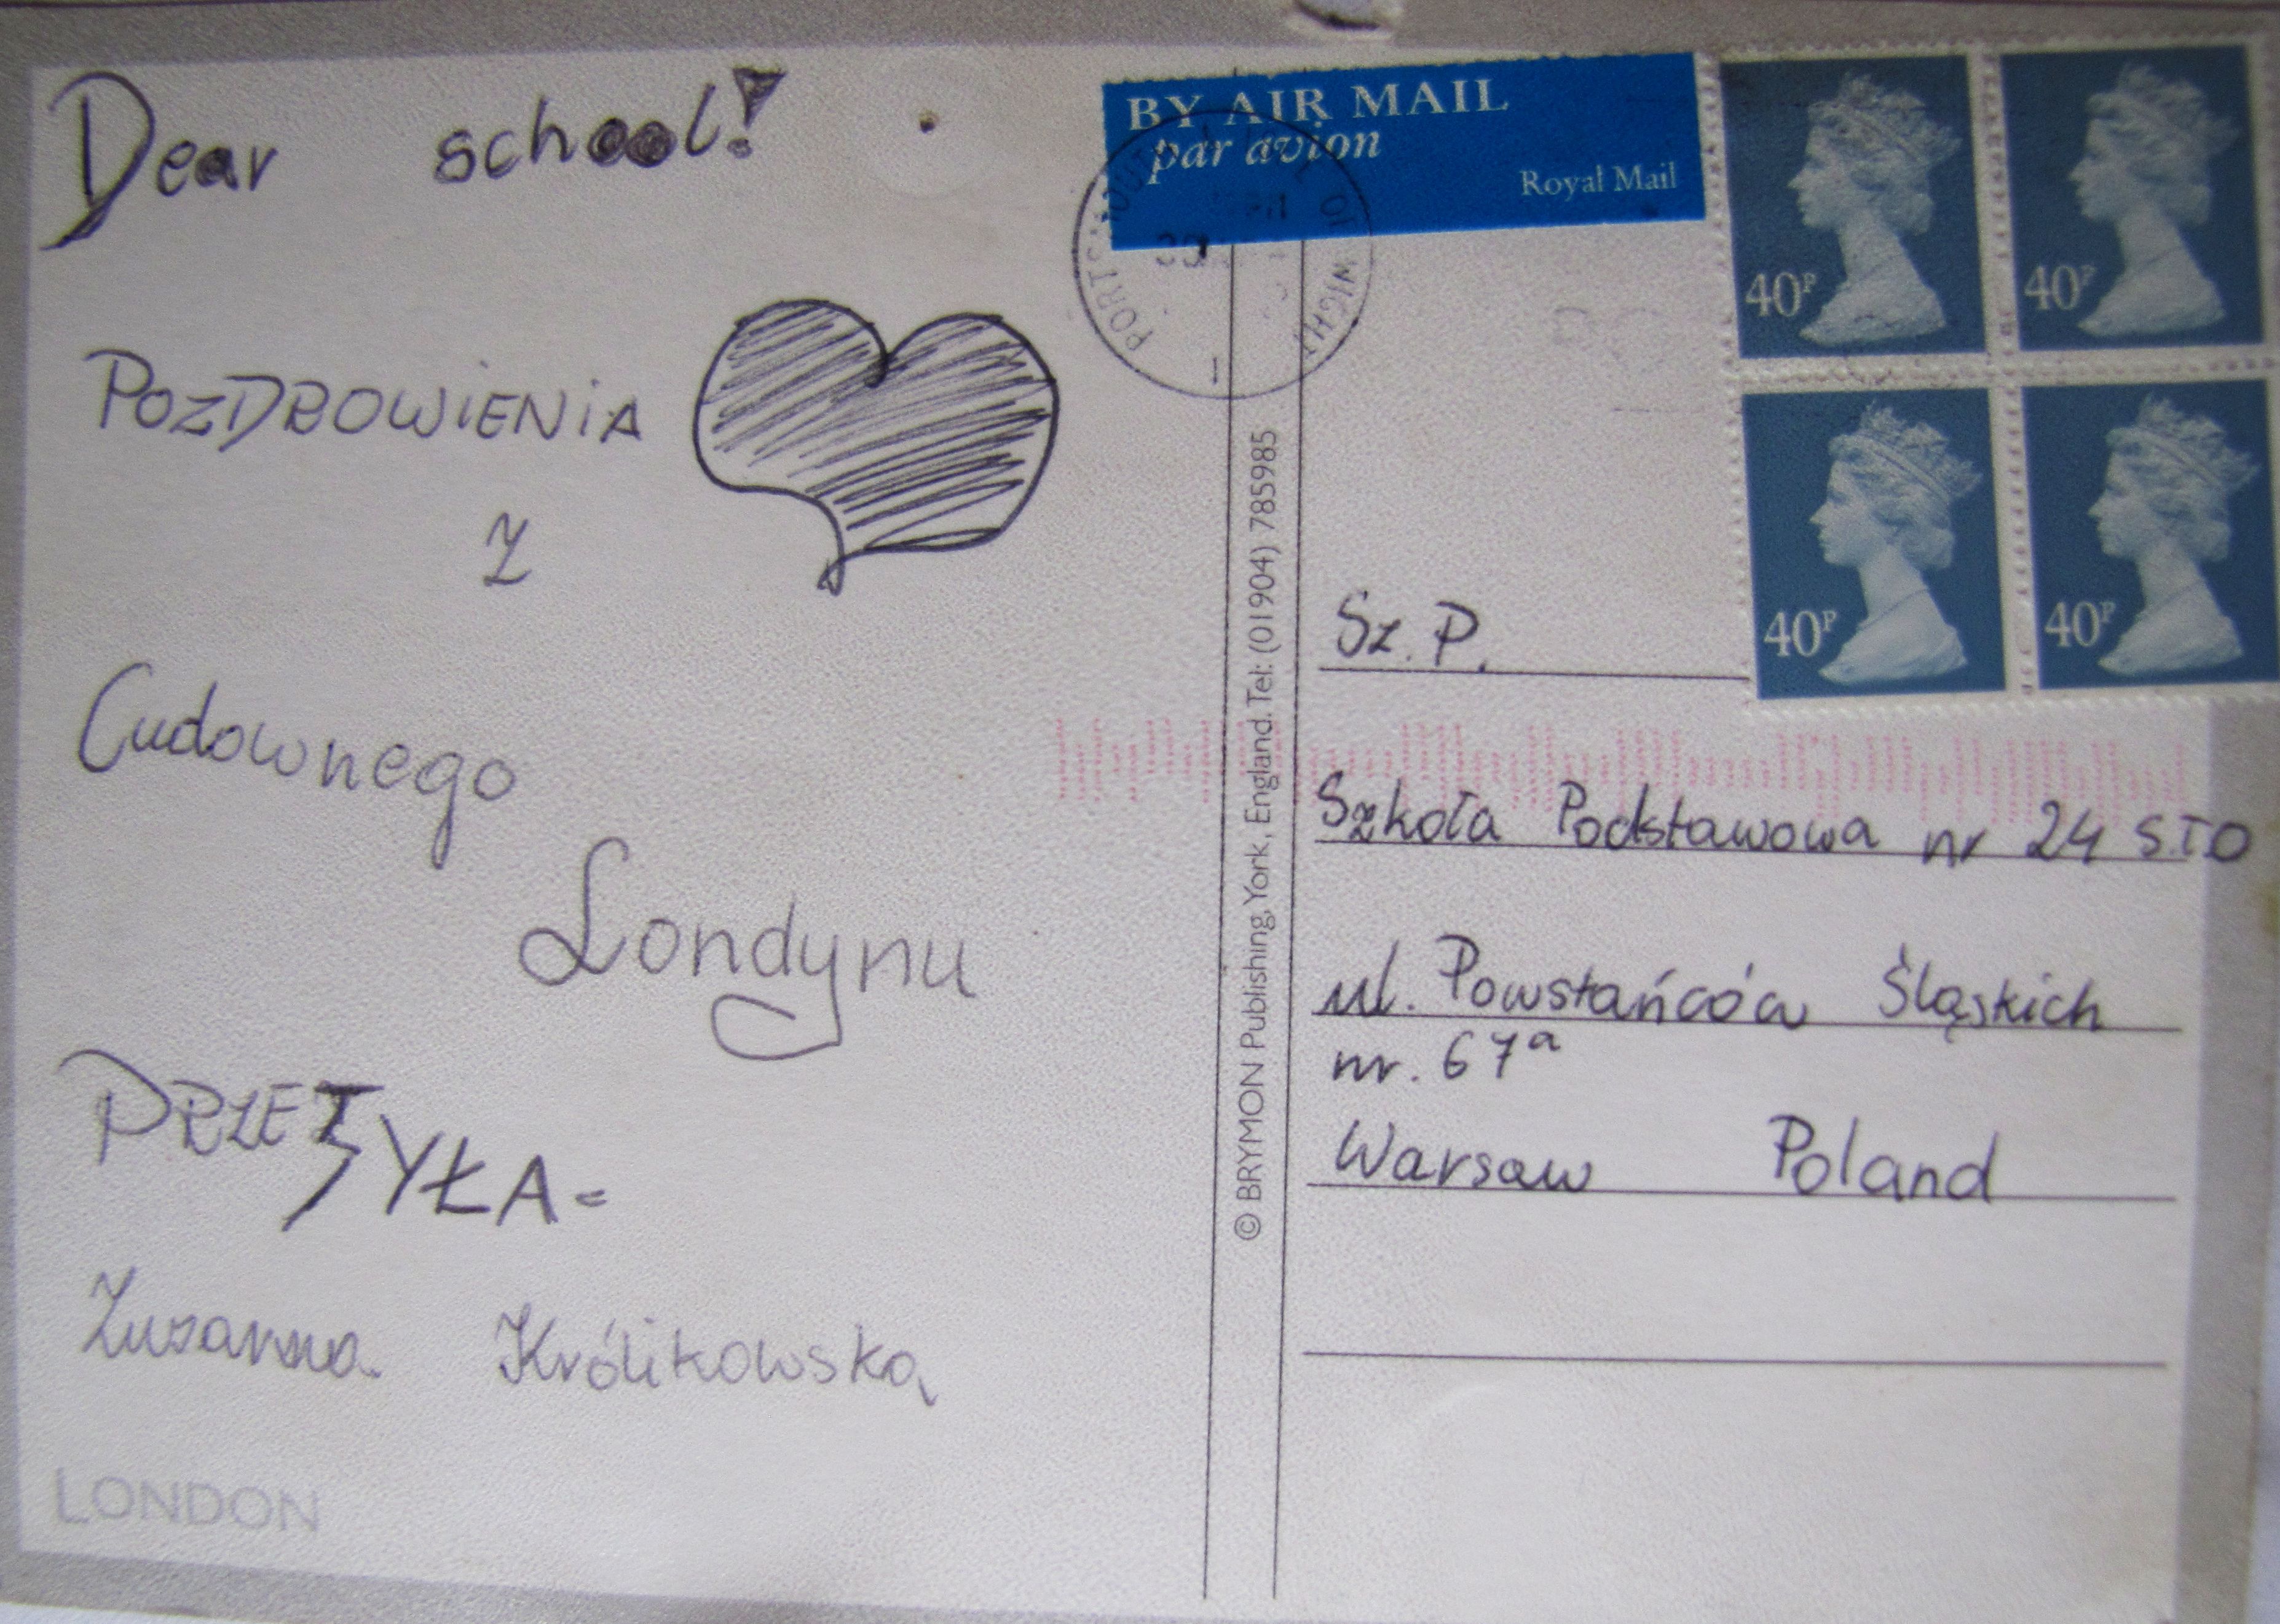 Dear school!
POZDROWIENIA
Z
Cudownego
Londynu
PRZESYŁA-
Zuzanna Królikowska
LONDON
BY AIR MAIL
par avion
Royal Mail
PORTSMOUTH OF WIGHT
40P
40P
40P
40P
© BRYMON Publishing, York, England. Tel: (01904) 785985
Sz. P.
Szkoła Podstawowa nr 24 STO
ul. Powstańców Śląskich
nr. 67a
Warsaw Poland